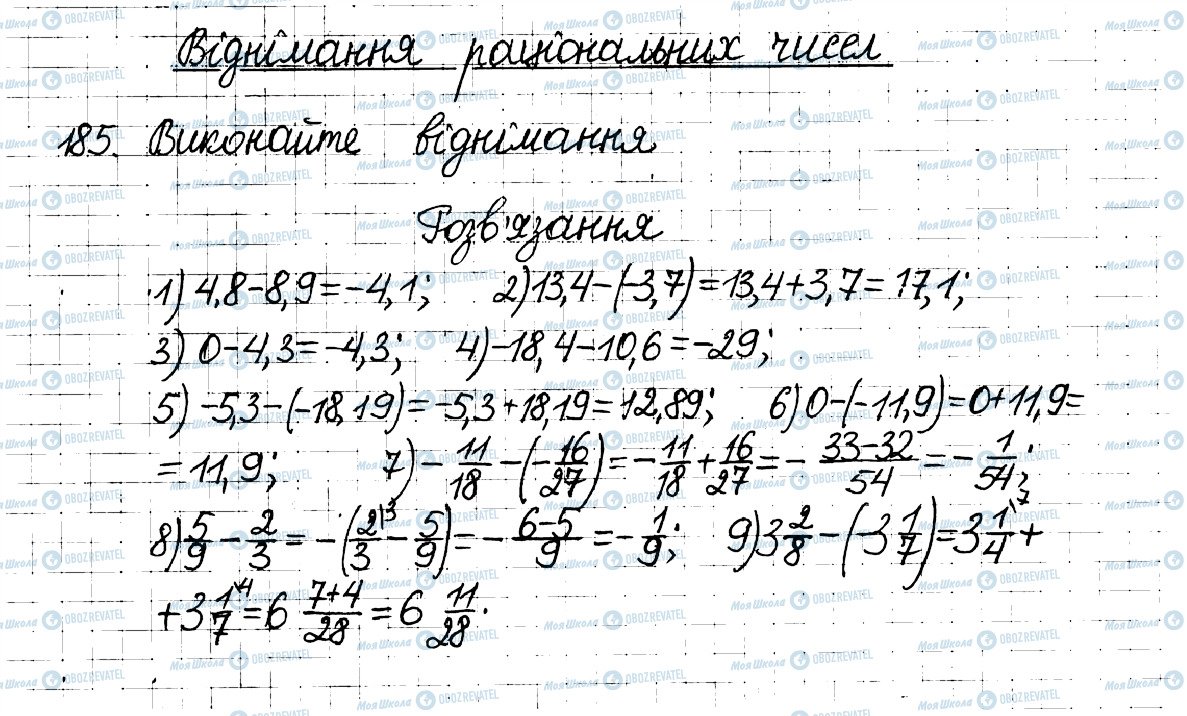 Віднімання раціональних чисел
185. Виконайте віднімання
Розв'язання
1) 4,8-8,9=-4,1; 2) 13,4-(-3,7)=13,4+3,7=17,1;
3) 0-4,3=-4,3; 4) -18,4-10,6=-29;
5) -5,3-(-18,19)=-5,3+18,19=12,89; 6) 0-(-11,9)=0+11,9=
=11,9; 7) -11/18-(-16/27)=-11/18+16/27=-(33-32)/54=-1/54;
8) 5/9-2/3=-(2/3\3-5/9)=-(6-5)/9=-1/9; 9) 3 2/8-(-3 1/7)=3 1/4\7+
+3 1/7\4=6 (7+4)/28=6 11/28.
Моя Школа OBOZREVATEL